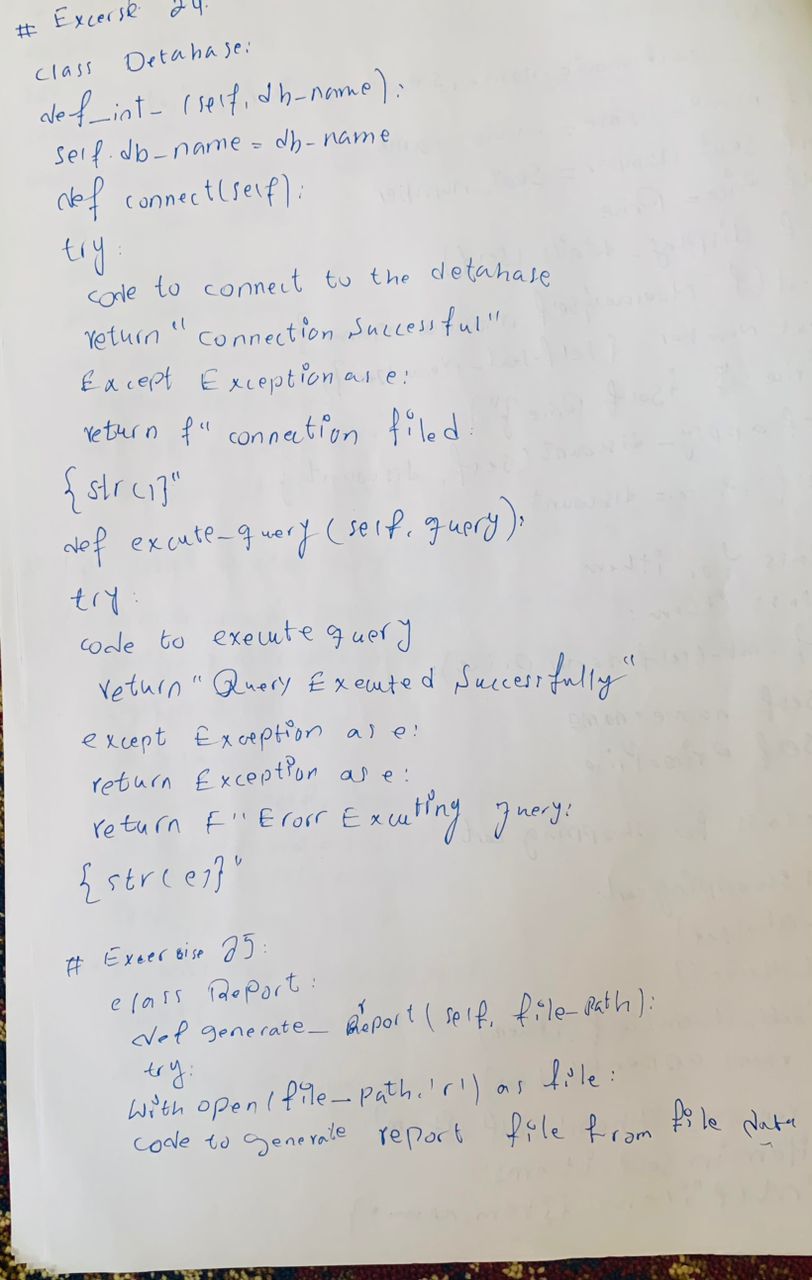 # Excersk 24.
class Detabase:
def_int_ (self, db-name):
self.db_name = db-name
def connect(self):
try:
code to connect to the detabase
return "connection Successful"
Except Exception as e:
return f" connection filed:
{str(1}"
def excute-query (self, query):
try:
code to execute query
return "Query Executed Successfully"
except Exception as e:
return Exception as e:
return F" Erorr Excuting query:
{str(e)}"
# Exercise 25:
class Report:
def generate_ report (self, file-path):
try:
with open(file_path,'r') as file:
code to generate report file from file data